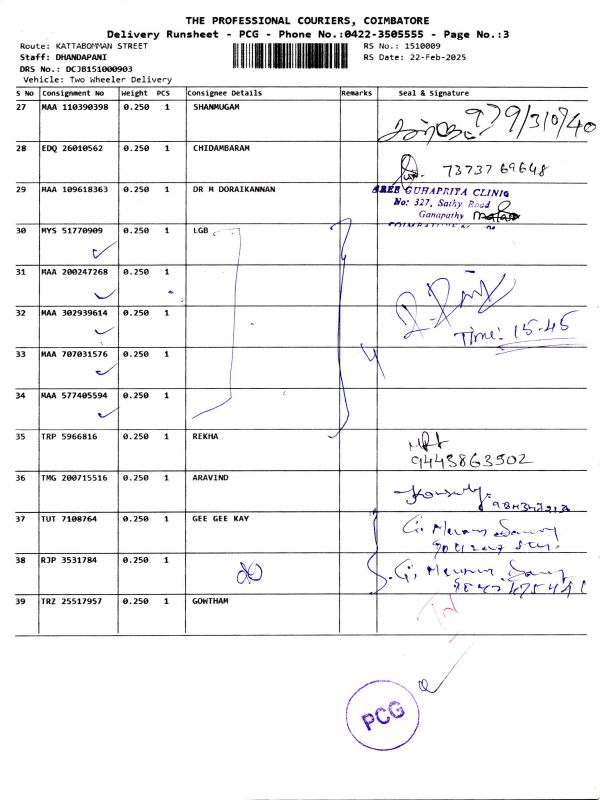 THE PROFESSIONAL COURIERS, COIMBATORE
Delivery Runsheet - PCG - Phone No.:0422-3505555 - Page No.:3
Route: KATTABOMMAN STREET
RS No.: 1510009
Staff: DHANDAPANI
RS Date: 22-Feb-2025
DRS No.: DCJB151000903
Vehicle: Two Wheeler Delivery
S No Consignment No Weight PCS Consignee Details Remarks Seal & Signature
27 MAA 110390398 0.250 1 SHANMUGAM
28 EDQ 26010562 0.250 1 CHIDAMBARAM
73737 69648
29 MAA 109618363 0.250 1 DR M DORAIKANNAN
SREE GUHAPRIYA CLINIC
No: 327, Sathy Road
Ganapathy
30 MYS 51770909 0.250 1 LGB
31 MAA 200247268 0.250 1
32 MAA 302939614 0.250 1
Time: 15-45
33 MAA 707031576 0.250 1
34 MAA 577405594 0.250 1
35 TRP 5966816 0.250 1 REKHA
9443863502
36 TMG 200715516 0.250 1 ARAVIND
37 TUT 7108764 0.250 1 GEE GEE KAY
38 RJP 3531784 0.250 1
39 TRZ 25517957 0.250 1 GOWTHAM
PCG